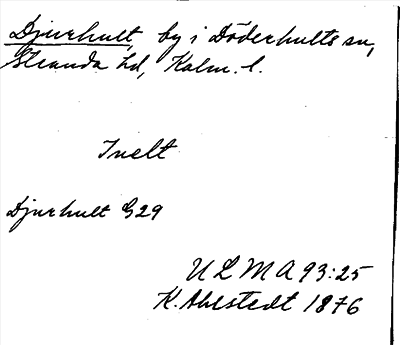 Djurhult, by i Döderhults sn,
Stranda hd, Kalm. l.
Inelt
Djurhult G29
ULMA 93:25
K. Ahlstedt 1876